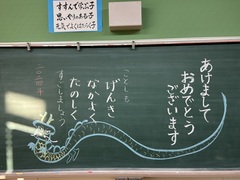 すすんで学ぶ子
思いやりのある子
元気でよくはたらく子
あけまして
おめでとう
ございます
ことしも
げんき
なかよく
たのしく
すごしましょう